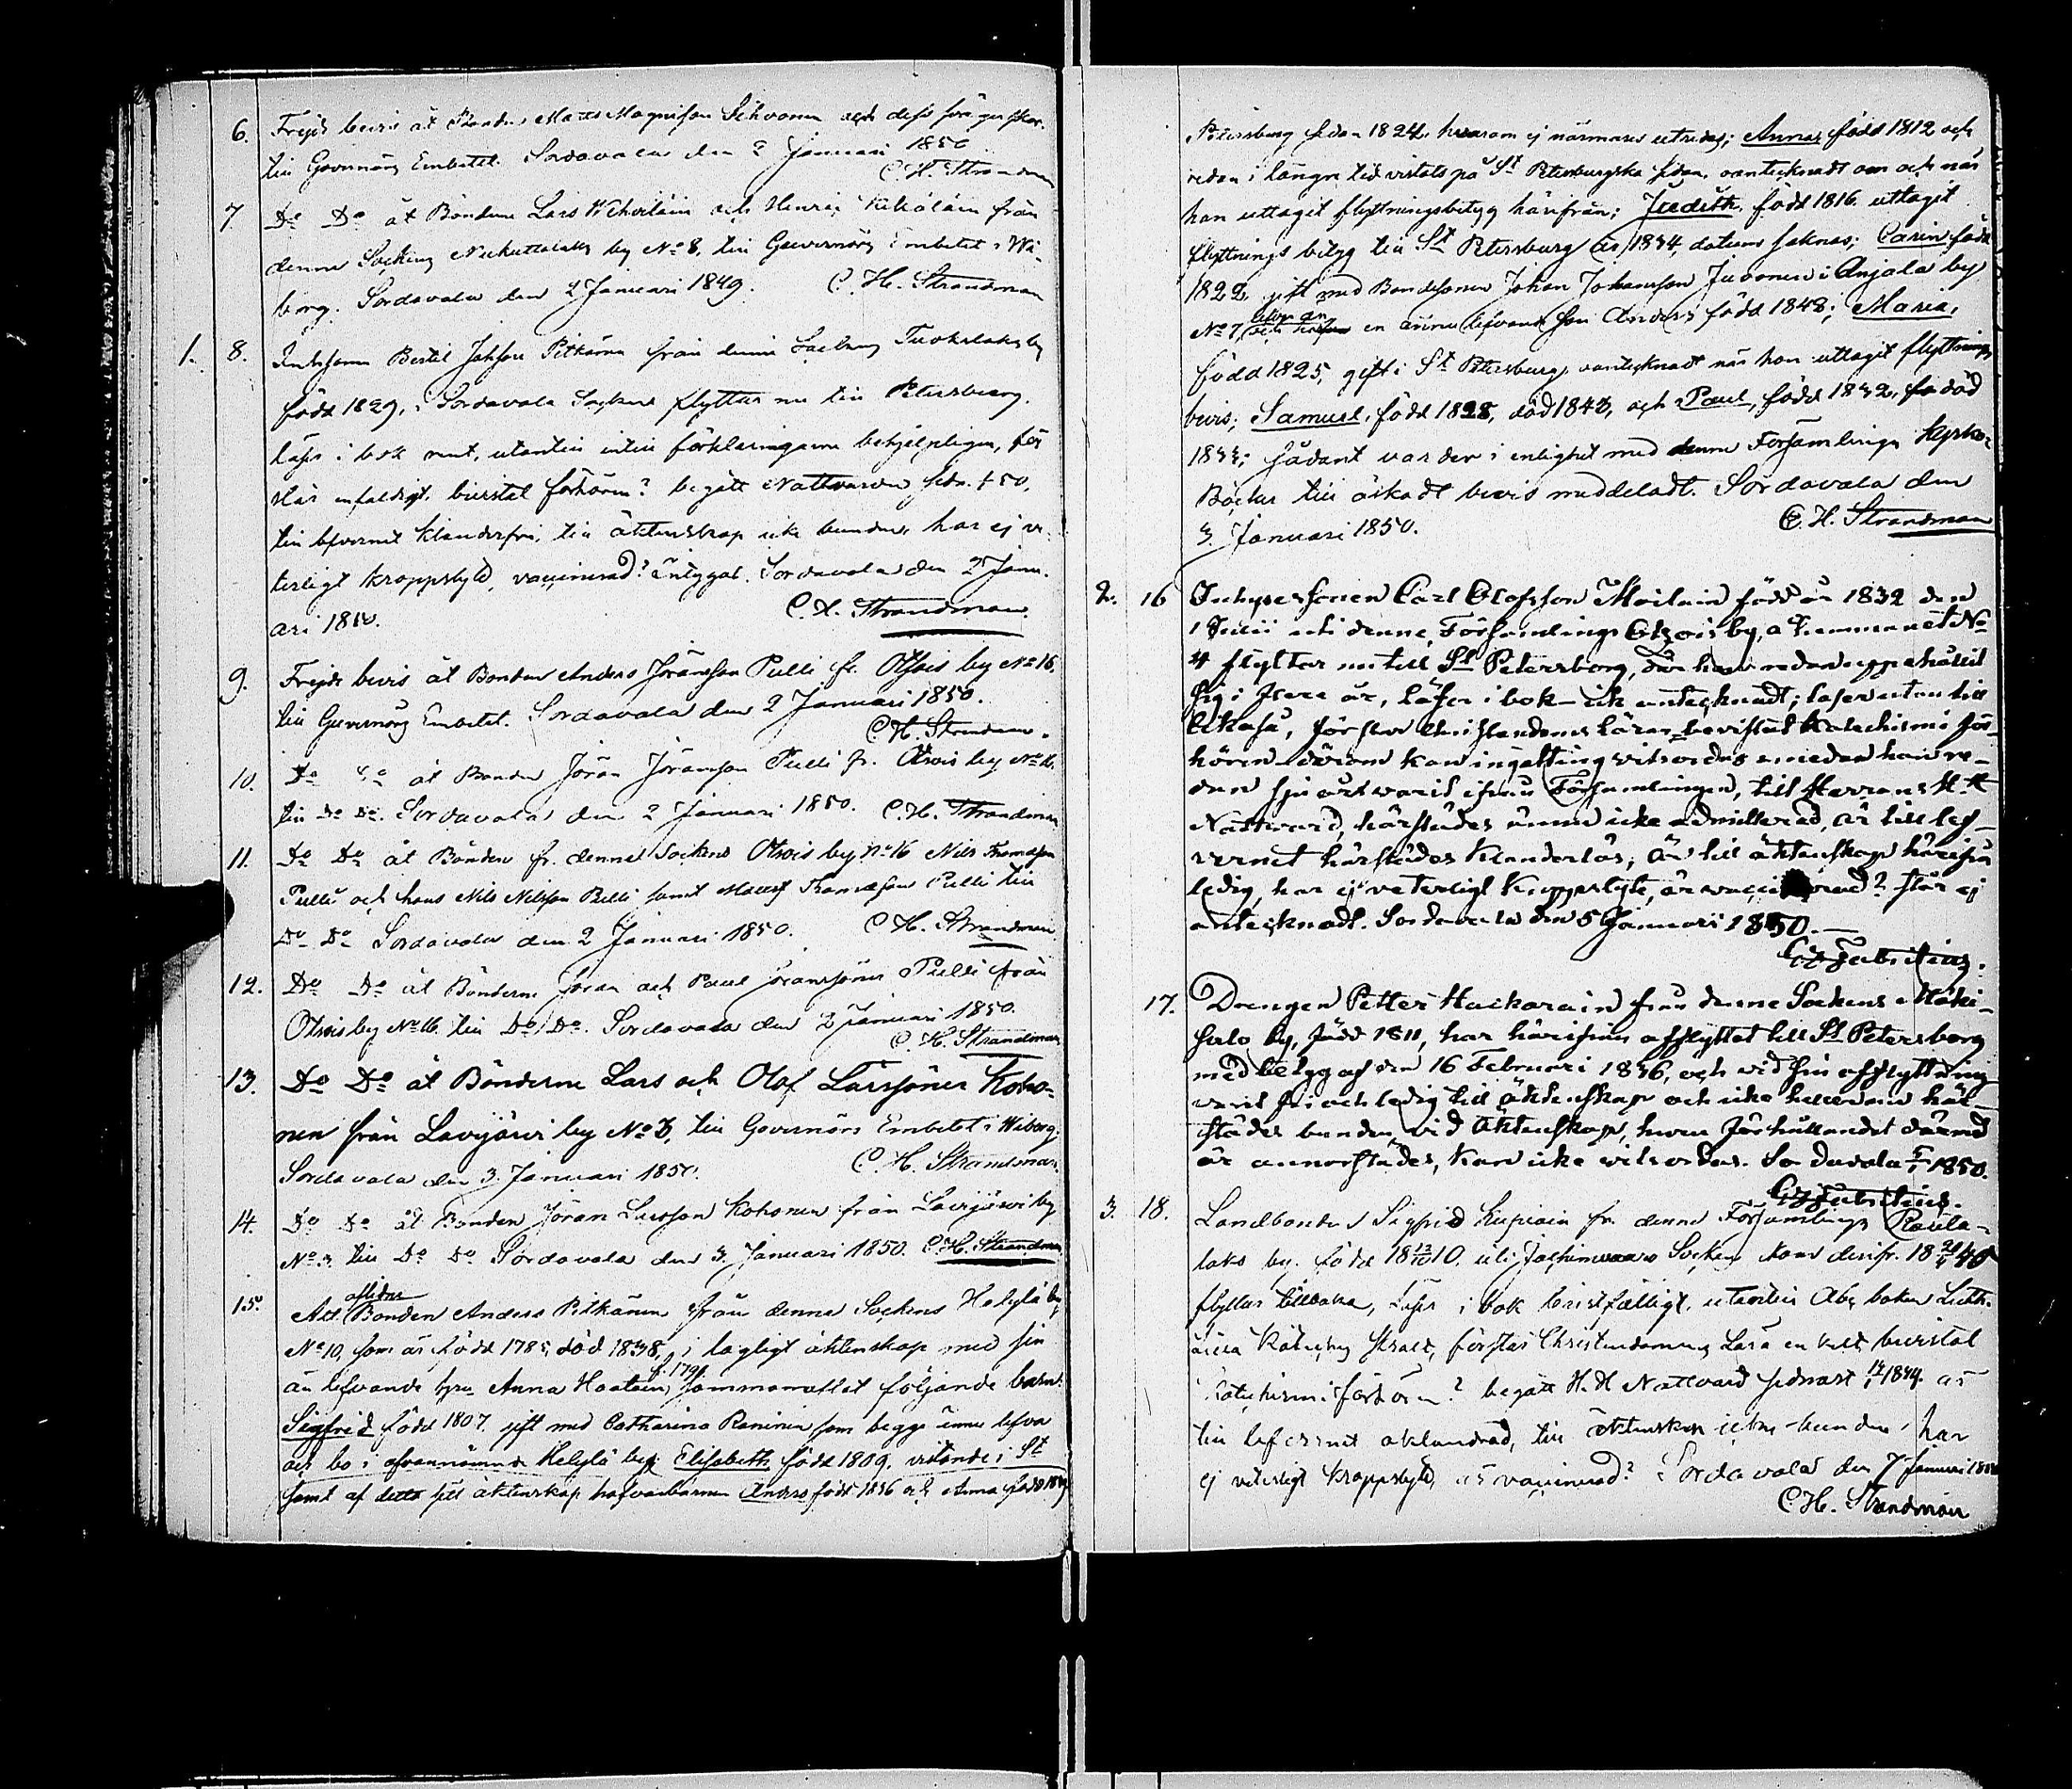 6. Frejd bevis åt Bonden Matts Magnisson Sihvonen och dess
till Governörs Embetet. Sordavala den 2 Januari 1850
C. H. Strandman
7 Do Do åt Bönderne Lars och Henric från
denna Sockens by No 8, till Guvernörs Embetet i Wi-
borg. Sordavala den 2 Januari 1849. C. H. Strandman
1. 8. Bertil Pitkänen från denna Sockens by
född 1829, i Sordavala Socken flyttar nu till Petersburg,
läser i bok rent, utantill förklaringarne behjelpligen, för
står enfaldigt, bevistat förhören? begått Nattvarden
till lefvernet klanderfri, till äktenskap icke bunden, har ej ve-
terligt kroppslyte, vaccinerad? intygat. Sordavala den 2 Janu-
ari 1850. C. H. Strandman
9. Frejde bevis åt Bonden Anders Jöransson Pulli fr. Otsois by No 16,
till Guvernörs Embetet. Sordavala den 2 Januari 1850.
C. H. Strandman.
10. Do Do åt Bonden Jöran Jöransson Pulli fr. Otsois by No 16.
till Do Do. Sordavala den 2 Januari 1850. C. H. Strandman
11. Do Do åt Bönderne fr. denna Sockens Otsois by No 16 Nils Thomasson
Pulli och hans Nils Nilsson Pulli samt Matts Thomasson Pulli till
Do Do Sordavala den 2 Januari 1850. C. H. Strandman
12. Do Do åt Bönderne Jöran och Paul Jöranssöner Pulli från
Otsois by No 16. till Do Do. Sordavala den 2 Januari 1850.
C. H. Strandman
13. Do Do åt Bönderne Lars och Olof Larssöner Koho-
nen från Lavijärvi by No 3, till Governörs Embetet i Wiborg.
Sordavala den 3 Januari 1850. C. H. Strandman.
14. Do Do åt Bonden Jöran Larsson Kohonen från Lavijärvi by
No 3 till Do Do. Sordavala den 3 Januari 1850. C. H. Strandman
15. Att aflidne Bonden Anders Pitkänen från denna Sockens Helylä by
No 10, som är född 1785, död 1838, i lagligt äktenskap med sin
än lefvande hru Anna f. 179 sammanaflat följande barn:
Sigfrid född 1807, gift med Catharina Raninen som begge ännu lefva
och bo i ofvannämnde Helylä by; Elisabeth född 1809, vistande i St
samt af detta sitt äktenskap hafva barnen Anders född 1836 och Anna född
Petersburg sedan 1824, hvarom ej närmare utredes; Anna, född 1812 och
redan i längre tid vistats på St Petersburgska sidan, oantecknadt om och när
hon uttagit flyttningsbetyg härifrån; Judith, född 1816, uttagit
flyttnings betyg till St Petersburg år 1834, datum saknas; Carin född
1822, gift med Bondesonen Johan Johansson Juvonen i Anjala by
No 7, en ännu lefvande son Anders född 1848; Maria,
född 1825, gift i St Petersburg, oantecknadt när hon uttagit flyttnings
bevis; Samuel, född 1828, död 1843, och Paul, född 1832,
1833; sådant varder i enlighet med denna Församlings Kyrko-
Böcker till äskadt bevis meddeladt. Sordavala den
3 Januari 1850. C. H. Strandman
2. 16 Inhysessonen Carl Olofsson Moilain född år 1832 den
1 Julii uti denne Församlings Otsois by, å hemmanet No
4 flyttar nu till St Petersborg, där han redan uppehållit
sig i flere år, läser i bok - ick antecknadt; läser utan till
likaså, förstår Christendoms läran - bevistat Katechismi för-
hören - därom kan ingenting vitsordas emedan han re-
dan sju års varit ifrån Församlingen, till Herrans H. H
Nattward, härstädes ännu icke admitterad, är till lef-
wernet härstädes klanderlös, är till äktenskap härifrån
ledig, har ej veterligt kroppslyte, är vaccinerad? står ej
antecknadt. Sordavala den 5 Januari 1850.
17. Drengen Petter Hackarain från denne Sockens Mäki-
salo by, född 1811, har härifrån afflyttat till St Petersborg
med betyg af den 16 Februari 1836, och vid sin afflyttning
varit fri och ledig till äktenskap och icke hellre nu här-
städes bunden vid äktenskap, huru förhållandet därmed
är annorstädes, kan icke vitsordas. Sordavala 1850.
3. 18. Landbonden Sigfrid Kupiain fr. denne Församlings
laks by, född 1810 uti Jaakimvara Socken kom derifr. 18
flyttar tillbaka, läser i bok bristfälligt, utantill Abc boken Luth.
förstår Christendomens Lära en bevistat
Katechismi förhören? begått H. H Nattvard sednast 1849 är
till lefvernet oklandrad, till äktenskap icke bunden, har
ej veterligt kroppslyte, är vaccinerad? Sordavala den 7 Januari 1850
C. H. Strandman